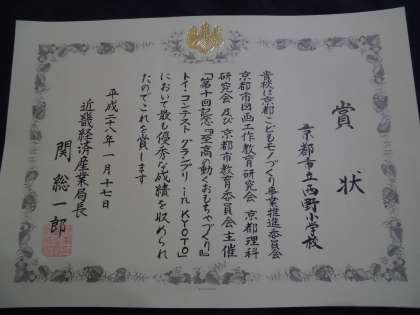 賞状
京都市立西野小学校
貴校は京都こどもモノづくり事業推進委員会
京都市図画工作教育研究会 京都理科
研究会及び京都市教育委員会主催
「第十回記念『至高の動くおもちゃづくり』
トイ・コンテスト グランプリ in KYOTO」
において最も優秀な成績を収められ
たのでこれを賞します
平成二十八年一月十七日
近畿経済産業局長
関総一郎